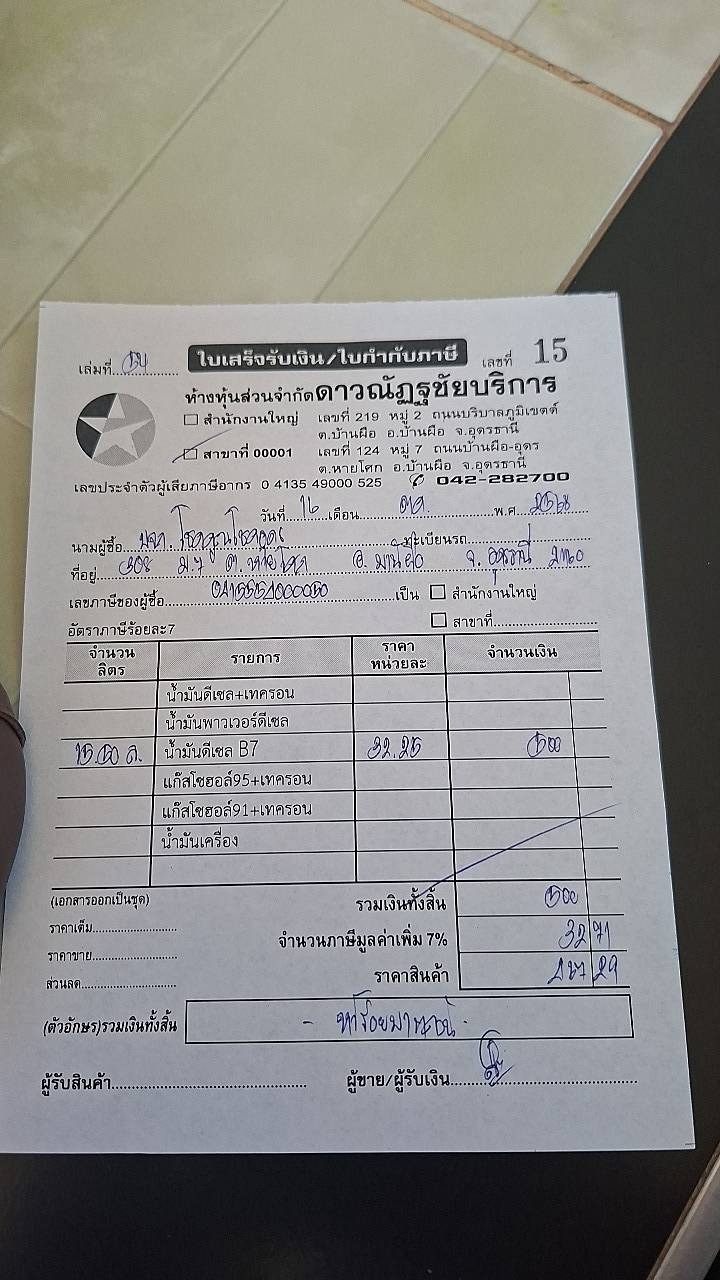 เล่มที่........ ใบเสร็จรับเงิน/ใบกำกับภาษี เลขที่ 15
ห้างหุ้นส่วนจำกัดดาวณัฏฐชัยบริการ
สำนักงานใหญ่ เลขที่ 219 หมู่ 2 ถนนบริบาลภูมิเขตต์
ต.บ้านผือ อ.บ้านผือ จ.อุดรธานี
สาขาที่ 00001 เลขที่ 124 หมู่ 7 ถนนบ้านผือ-อุดร
ต.หายโศก อ.บ้านผือ จ.อุดรธานี
เลขประจำตัวผู้เสียภาษีอากร 0 4135 49000 525 042-282700
วันที่ 16 เดือน ต.ค. พ.ศ. 2568
นามผู้ซื้อ บจก. ทะเบียนรถ
ที่อยู่ 308 ม.7 ต.หายโศก อ.บ้านผือ จ.อุดรธานี 41160
เลขภาษีของผู้ซื้อ เป็น สำนักงานใหญ่
อัตราภาษีร้อยละ7 สาขาที่
จำนวนลิตร รายการ ราคาหน่วยละ จำนวนเงิน
น้ำมันดีเซล+เทครอน
น้ำมันพาวเวอร์ดีเซล
15.50 ล. น้ำมันดีเซล B7 32.25 500
แก๊สโซฮอล์95+เทครอน
แก๊สโซฮอล์91+เทครอน
น้ำมันเครื่อง
(เอกสารออกเป็นชุด) รวมเงินทั้งสิ้น 500
ราคาเต็ม จำนวนภาษีมูลค่าเพิ่ม 7% 32 71
ราคาขาย
ราคาสินค้า 467 29
ส่วนลด
(ตัวอักษร)รวมเงินทั้งสิ้น - ห้าร้อยบาทถ้วน -
ผู้รับสินค้า ผู้ขาย/ผู้รับเงิน